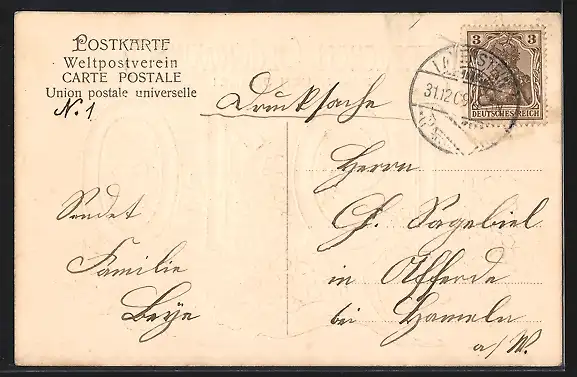 POSTKARTE
Weltpostverein
CARTE POSTALE
Union postale universelle
N. 1
Drucksache
3 3
DEUTSCHES REICH
31.12.09
Herrn
Ch. Sagebiel
in Afferde
bei Hameln
a/W.
Sendet
Familie
Beye